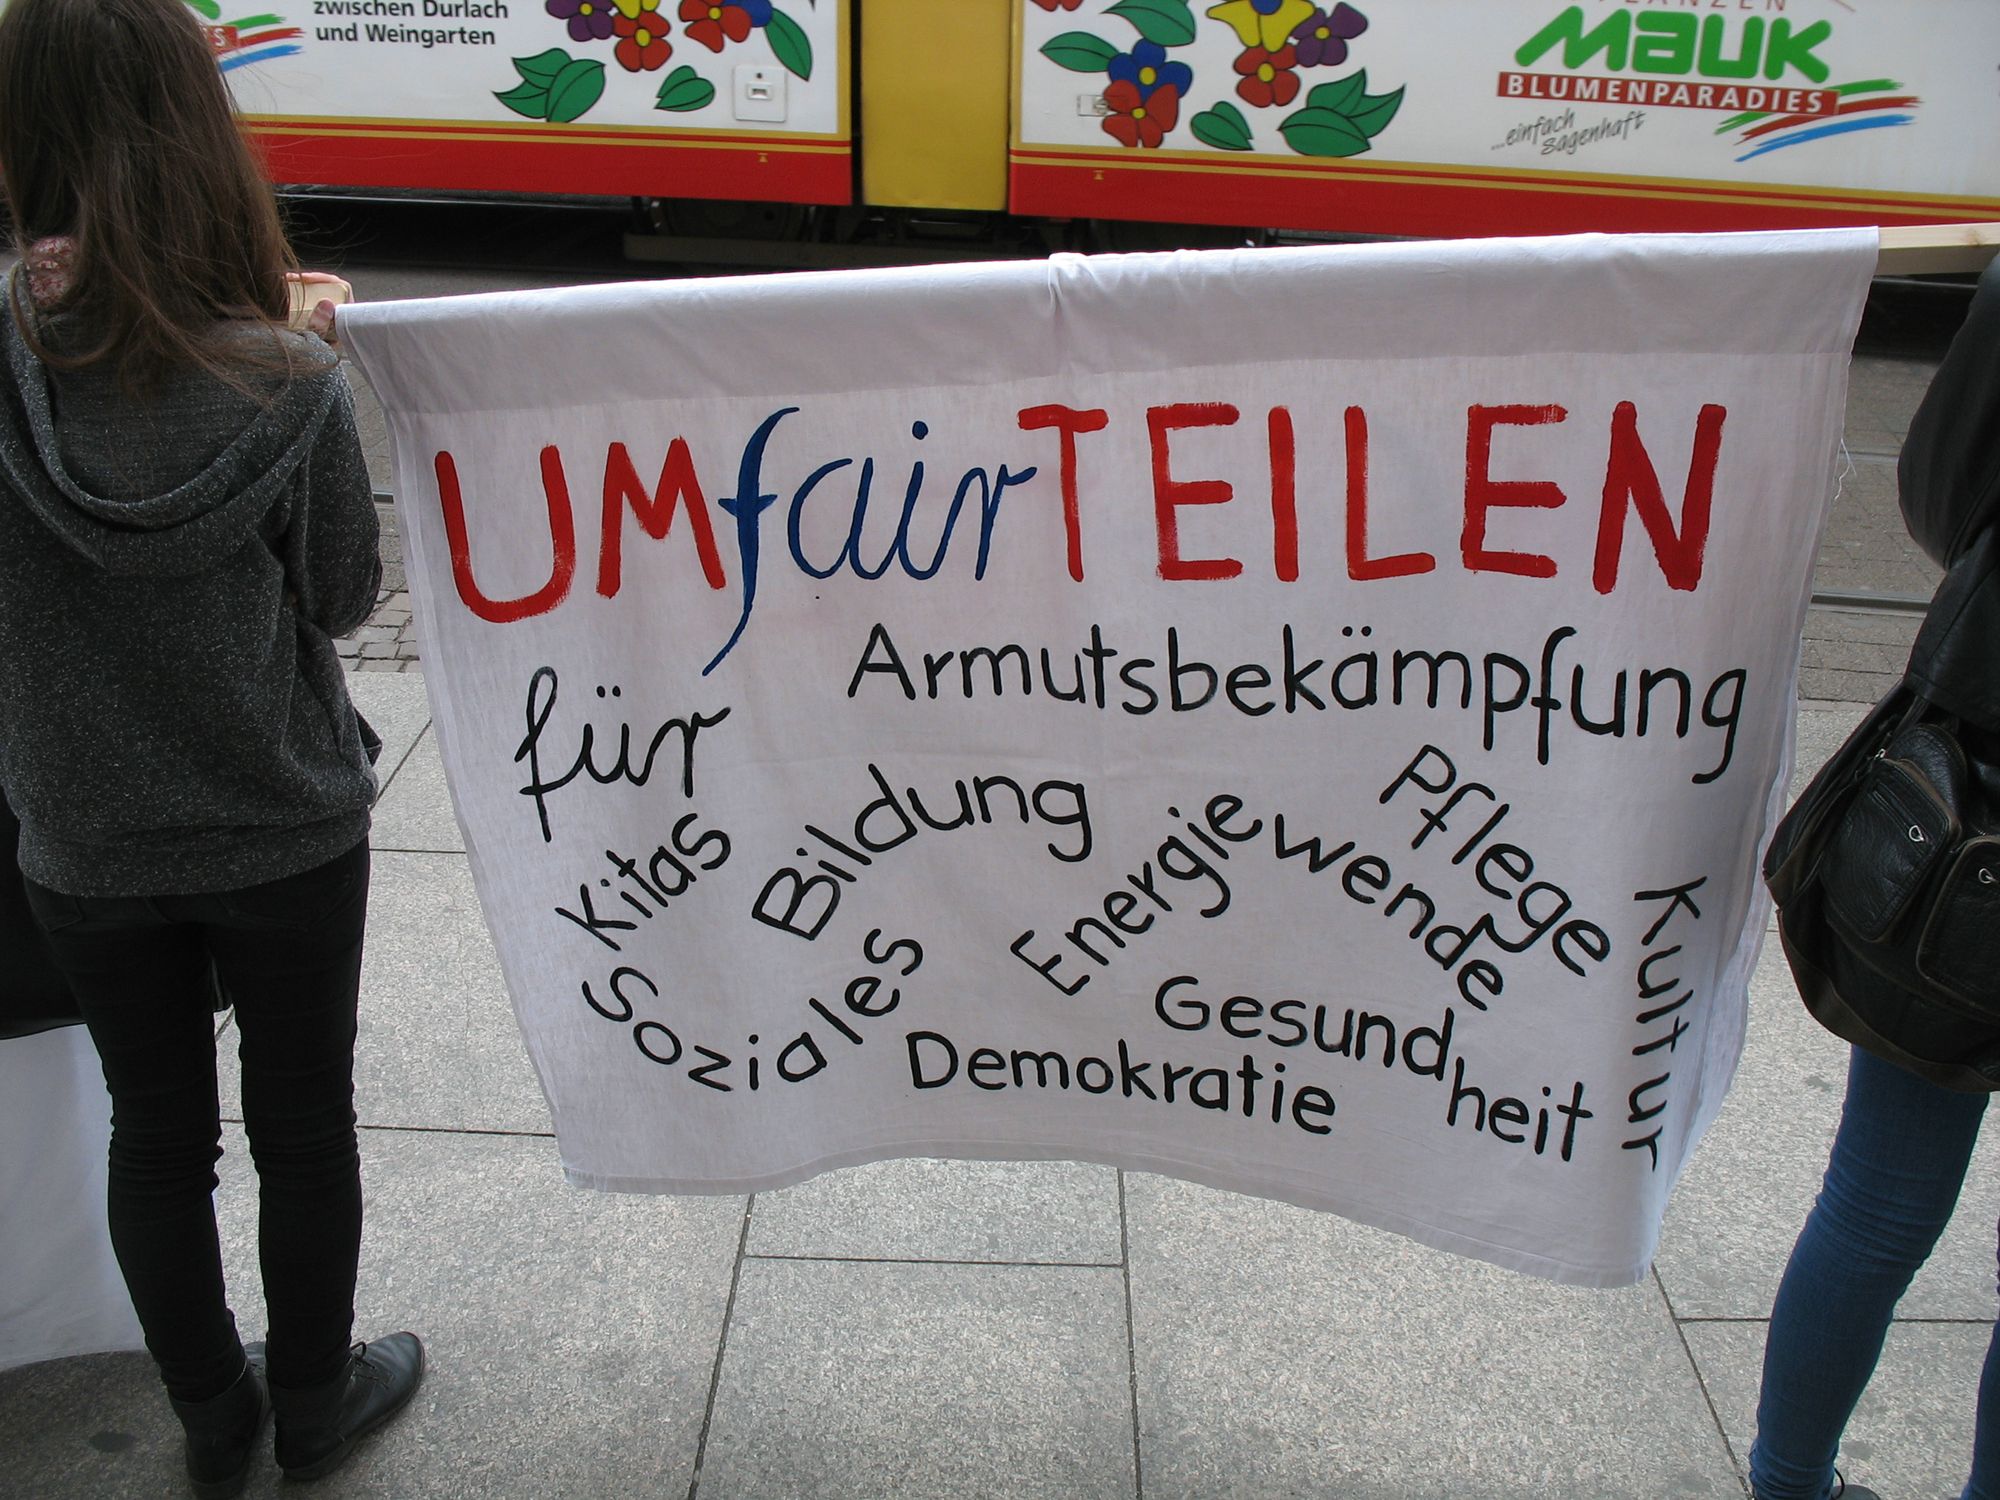 zwischen Durlach
und Weingarten
Mauk
BLUMENPARADIES
...einfach
sagenhaft
UMfairTEILEN
für
Armutsbekämpfung
Kitas
Bildung
Energiewende
Pflege
Kultur
Soziales
Demokratie
Gesundheit